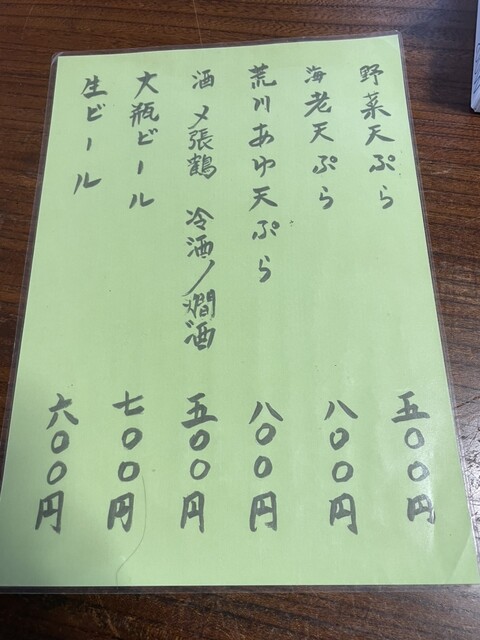 野菜天ぷら 五〇〇円
海老天ぷら 八〇〇円
荒川あゆ天ぷら 八〇〇円
酒 〆張鶴 冷酒/燗酒 五〇〇円
大瓶ビール 七〇〇円
生ビール 六〇〇円